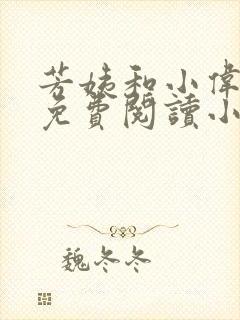 芳姨和小偉
免費閱讀小
魏冬冬